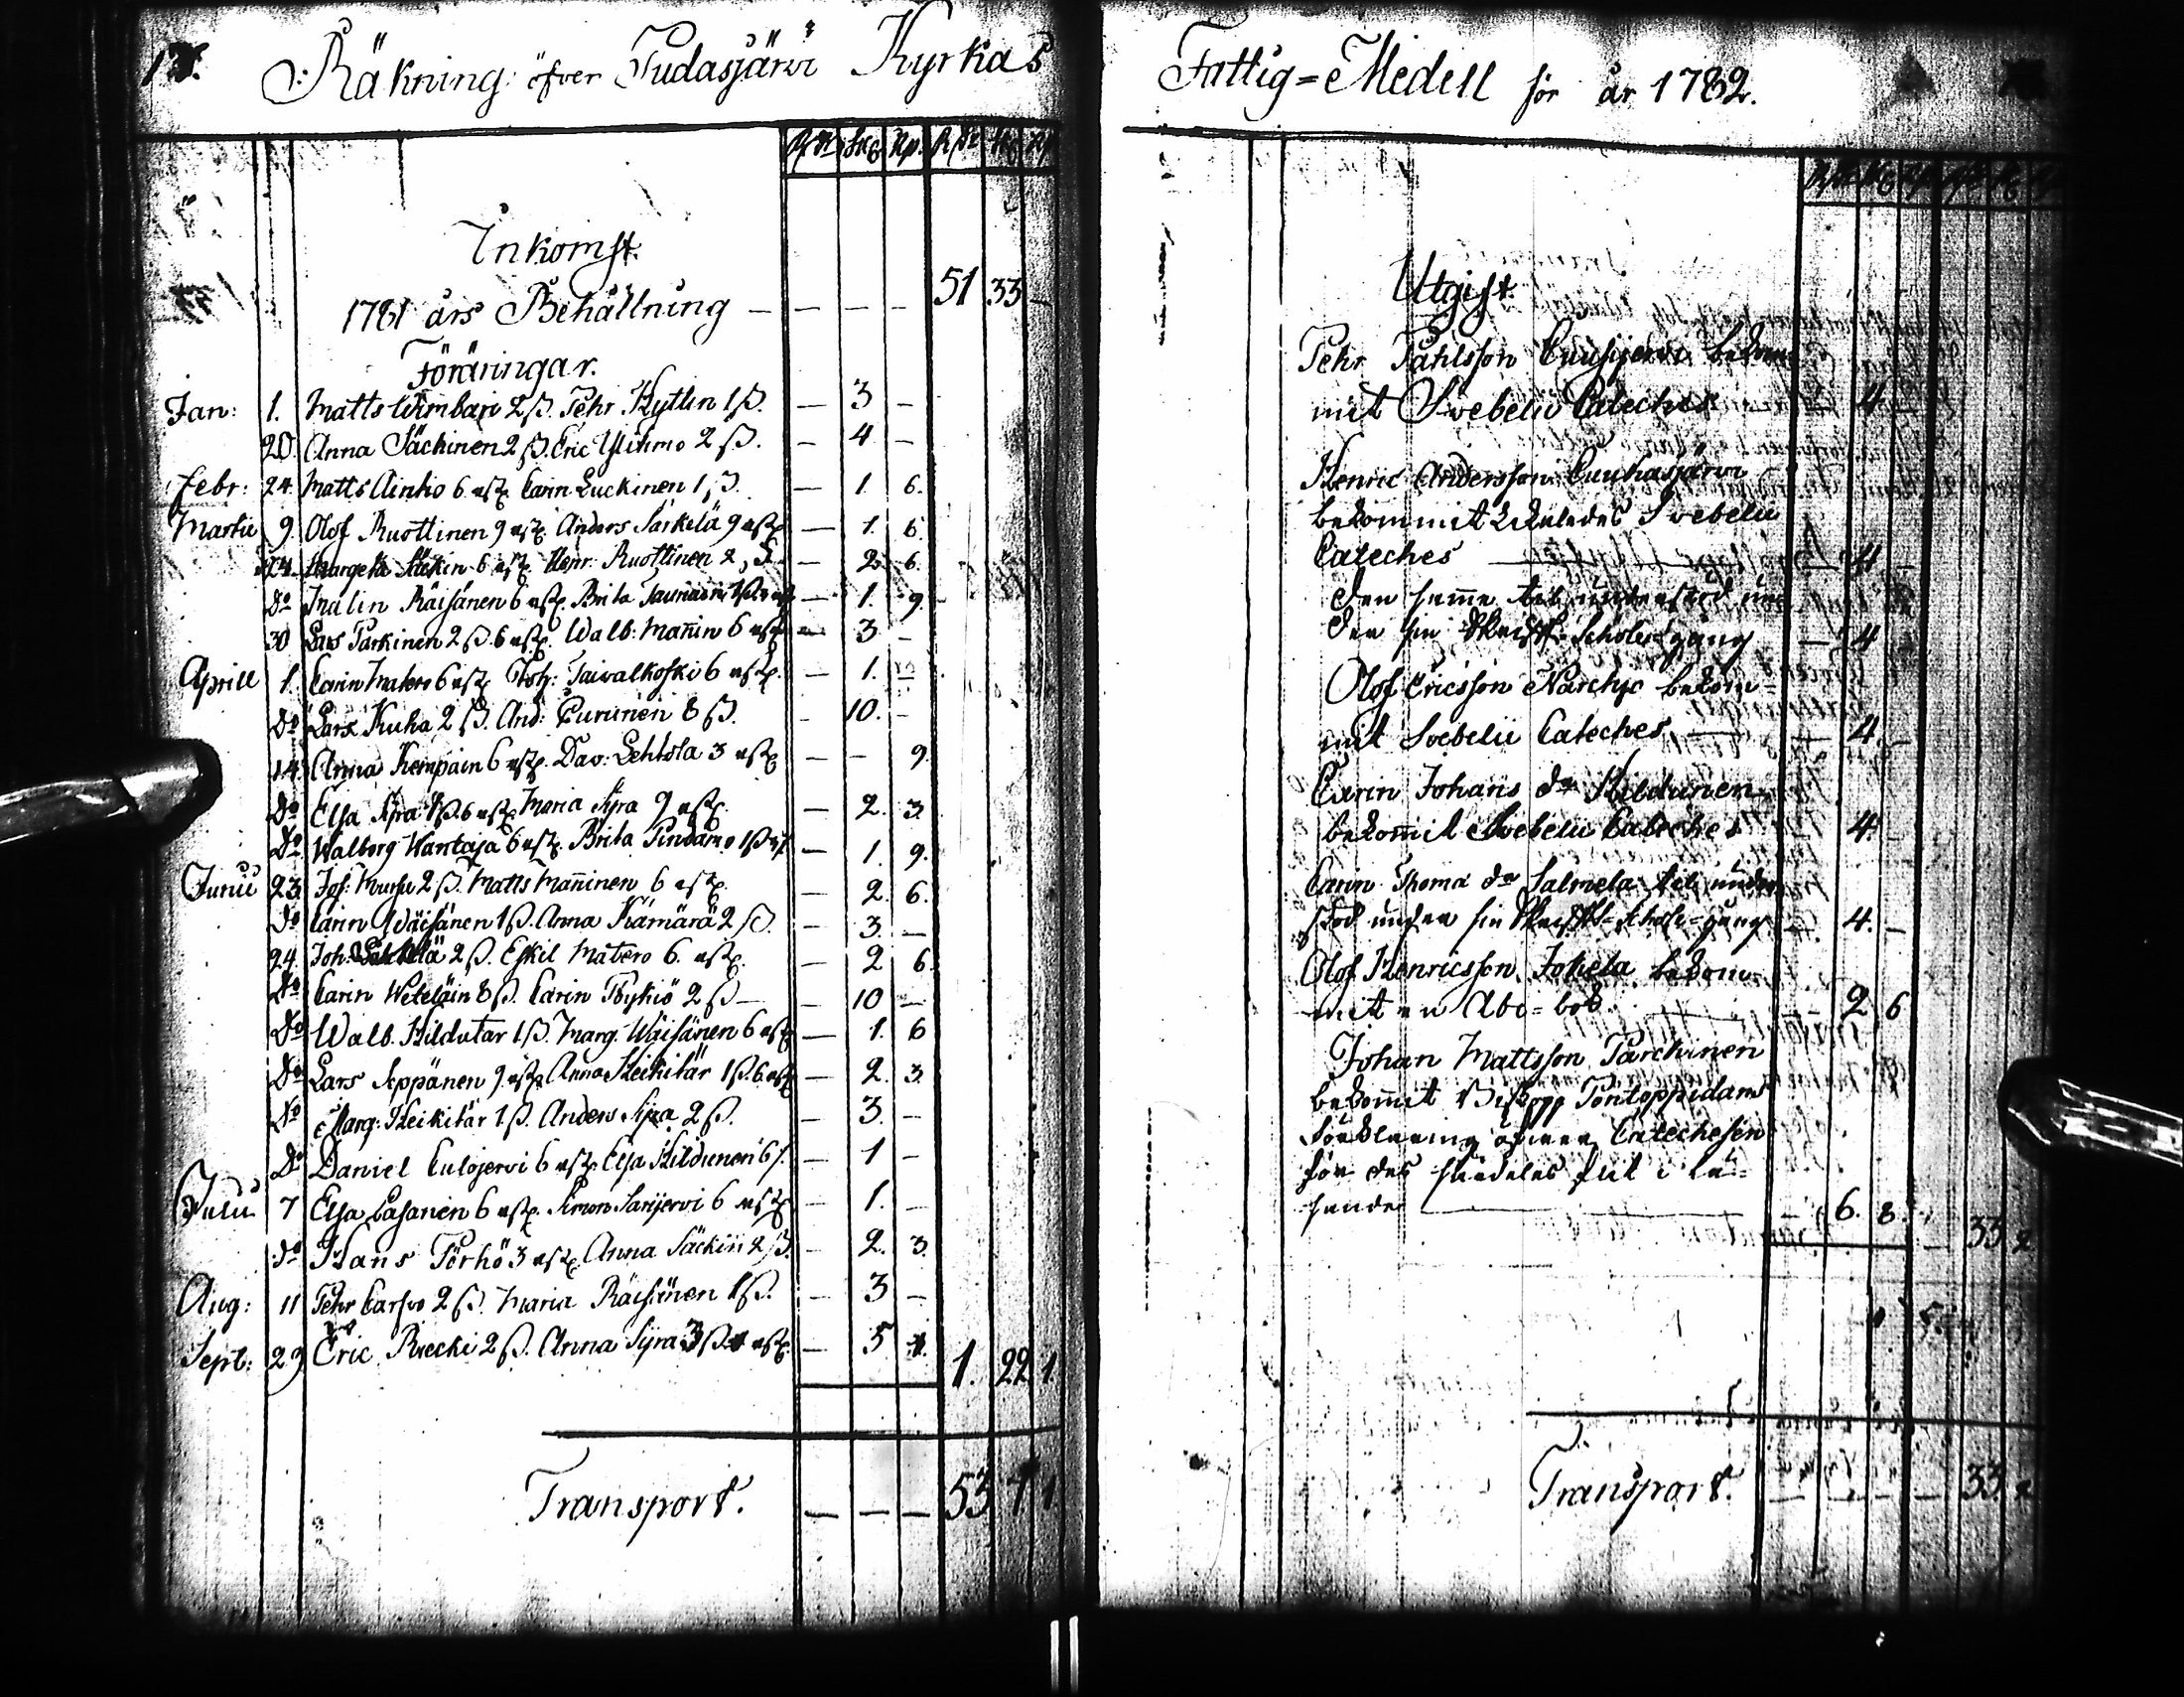 Räkning öfver Pudasjärvi Kyrkas
Inkomst.
1781 års Behållning — — — — 51 33 —
Föräringar.
Jan: 1. Matts Wimbari 2 ß. Pehr Kytlin 1 ß. — 3 —
20. Anna Säckinen 2 ß. Eric Ylitimo 2 ß. — 4 —
Febr: 24. Matts Ainio 6 rst. Carin Luckinen 1 ß. — 1. 6.
Martii 9. Olof Ruottinen 9 rst. Anders Särkelä 9 rst. — 1. 6.
24. Margeta Säckin 6 rst. Henr. Ruottinen 2 ß. — 2. 6.
Do Malin Räisänen 6 rst. Brita — 1. 9.
30 Lars Parkinen 2 ß. 6 rst. Walb: Mannin 6 rst. — 3 —
Aprill 1. Carin Matero 6 rst. Joh: Taivalkoski 6 rst. — 1. —
Do Lars Kuha 2 ß. And: Puruinen 8 ß. — 10. —
14. Anna Kempain 6 rst. Dav: Lehtola 3 rst. — — 9.
Do Elsa Syra 1 ß. 6 rst. Maria Syra 9 rst. — 2. 3.
Do Walborg Wantaja 6 rst. Brita Pindamo 1 ß — 1. 9.
Junii 23. Jos: Mursu 2 ß. Matts Manninen 6 rst. — 2. 6.
Do Carin Wäisänen 1 ß. Anna Kämärä 2 ß. — 3. —
24. Joh: 2 ß. Eskil Matero 6. rst. — 2 6.
Do Carin Weteläin 8 ß. Carin Töykiö 2 ß — — 10 —
Do Walb. Hildutar 1 ß. Marg. Wäisänen 6 rst. — 1. 6
Do Lars Seppänen 9 rst. Anna Heikitär 1 ß. 6. rst. — 2. 3.
Do Marg: Heikitär 1 ß. Anders Syra 2 ß. — 3. —
Do Daniel Culojervi 6 rst. Elsa Hildunen 6 — 1 —
Julii 7 Elsa Lasanen 6 rst. Simon Sarijervi 6 rst. — 1. —
Do Hans Törhö 3 rst. Anna Säckin 2 ß. — 2. 3.
Aug: 11 Pehr Carhu 2 ß. Maria Räisänen 1 ß. — 3 —
Sept: 29 Eric Riecki 2 ß. Anna Syra 3 ß. rst. — 5 1. 1. 22 1.
Transport. — — — 53 7 1.
Fattig=Medell för år 1782.
Utgift.
Pehr Påhlsson bekom=
mit Svebelii Cateches 4
Henric Andersson Cuuhasjärvi
bekommit Svebelii
Cateches — 4 —
den samme till understöd un
der sin Schole=gång — 4
Olof Ericsson Närhjo bekom=
mit Svebelii Cateches — 4. —
Carin Johans dr Hildunen
bekommit Svebelii Cateches 4.
Carin Thomæ dr Salmela till under
stöd under sin Schole=gång — 4. —
Olof Henricsson Jokela bekom=
mit en Abc=bok. 2 6
Johan Mattsson Parckinen
bekommit Biskopp Pontoppidans
förklaring öfver Catechesen
för des flit i lä=
sande — 6. 8. — 33 2
Transport. — — — — 33. 2